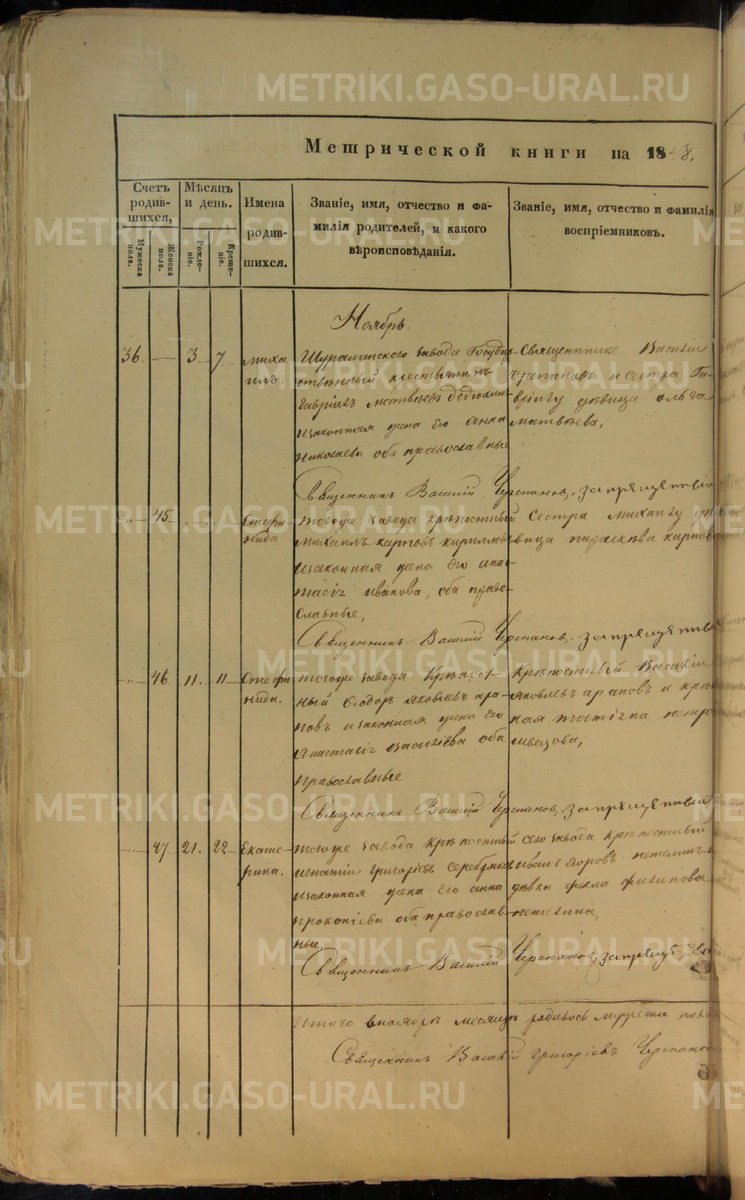 METRIKI.GASO-URAL.RU
Метрической книги на 1848.
Счетъ родив-шихся,
Мужеска пола.
Женска пола.
Мѣсяцъ и день.
Рожде-ніе.
Креще-ніе.
Имена родив-шихся.
Званіе, имя, отчество и фа-
милія родителей, и какого
вѣроисповѣданія.
Званіе, имя, отчество и фамилія
воспріемниковъ.
Ноябрь.
36. — 3 7 Миха
илъ.
завода Государ
ственный крестьянинъ
Гавріилъ Матвѣевъ
и законная жена его Анна
Николаева оба православные
Священникъ Василій
Черепановъ и сестра Га
вріилу дѣвица Ольга
Матвѣева,
Священникъ Василій Черепановъ.
45 Стефа
нида
тогоже завода крѣпостный
Михаилъ Карповъ Кирилловъ
и законная жена его Анас
тасія Иванова, оба право
славные,
Сестра Михаилу дѣ
вица Параскева Карпова
Священникъ Василій Черепановъ.
46 11. 11 Стефа
нида.
тогоже завода крѣпост
ный Ѳеодоръ Яковлевъ Ара
повъ и законная жена его
Анастасія Василіева оба
православные
Крѣпостный Василій
Яковлевъ Араповъ и
Священникъ Василій Черепановъ.
47 21. 22 Екате
рина.
тогоже завода крѣпостный
Игнатій Григоріевъ
и законная жена его Анна
Прокопіева оба православ
ные,
сего завода крѣпостный
Иванъ
дѣвка Фекла Филипова
Священникъ Василій Черепановъ,
Итого въ ноябрѣ месяцѣ родилось
Священникъ Василій Григоріевъ Черепановъ